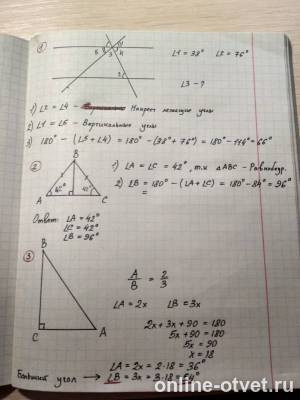 ①
∠1 = 38° ∠2 = 76°
5 4
3 4
2
∠3 - ?
1) ∠2 = ∠4 - Накрест лежащие углы
2) ∠1 = ∠5 - Вертикальные углы
3) 180° - (∠5 + ∠4) = 180° - (38° + 76°) = 180° - 114° = 66°
②
B
42° 42°
A C
1) ∠A = ∠C = 42°, т.к △ABC - Равнобедр.
2) ∠B = 180° - (∠A + ∠C) = 180° - 84° = 96°
=
Ответ: ∠A = 42°
∠C = 42°
∠B = 96°
③
B
C A
A/B = 2/3
∠A = 2x ∠B = 3x
2x + 3x + 90 = 180
5x + 90 = 180
5x = 90
x = 18
∠A = 2x = 2·18 = 36°
Больший угол → ∠B = 3x = 3·18 = 54°
online-otvet.ru